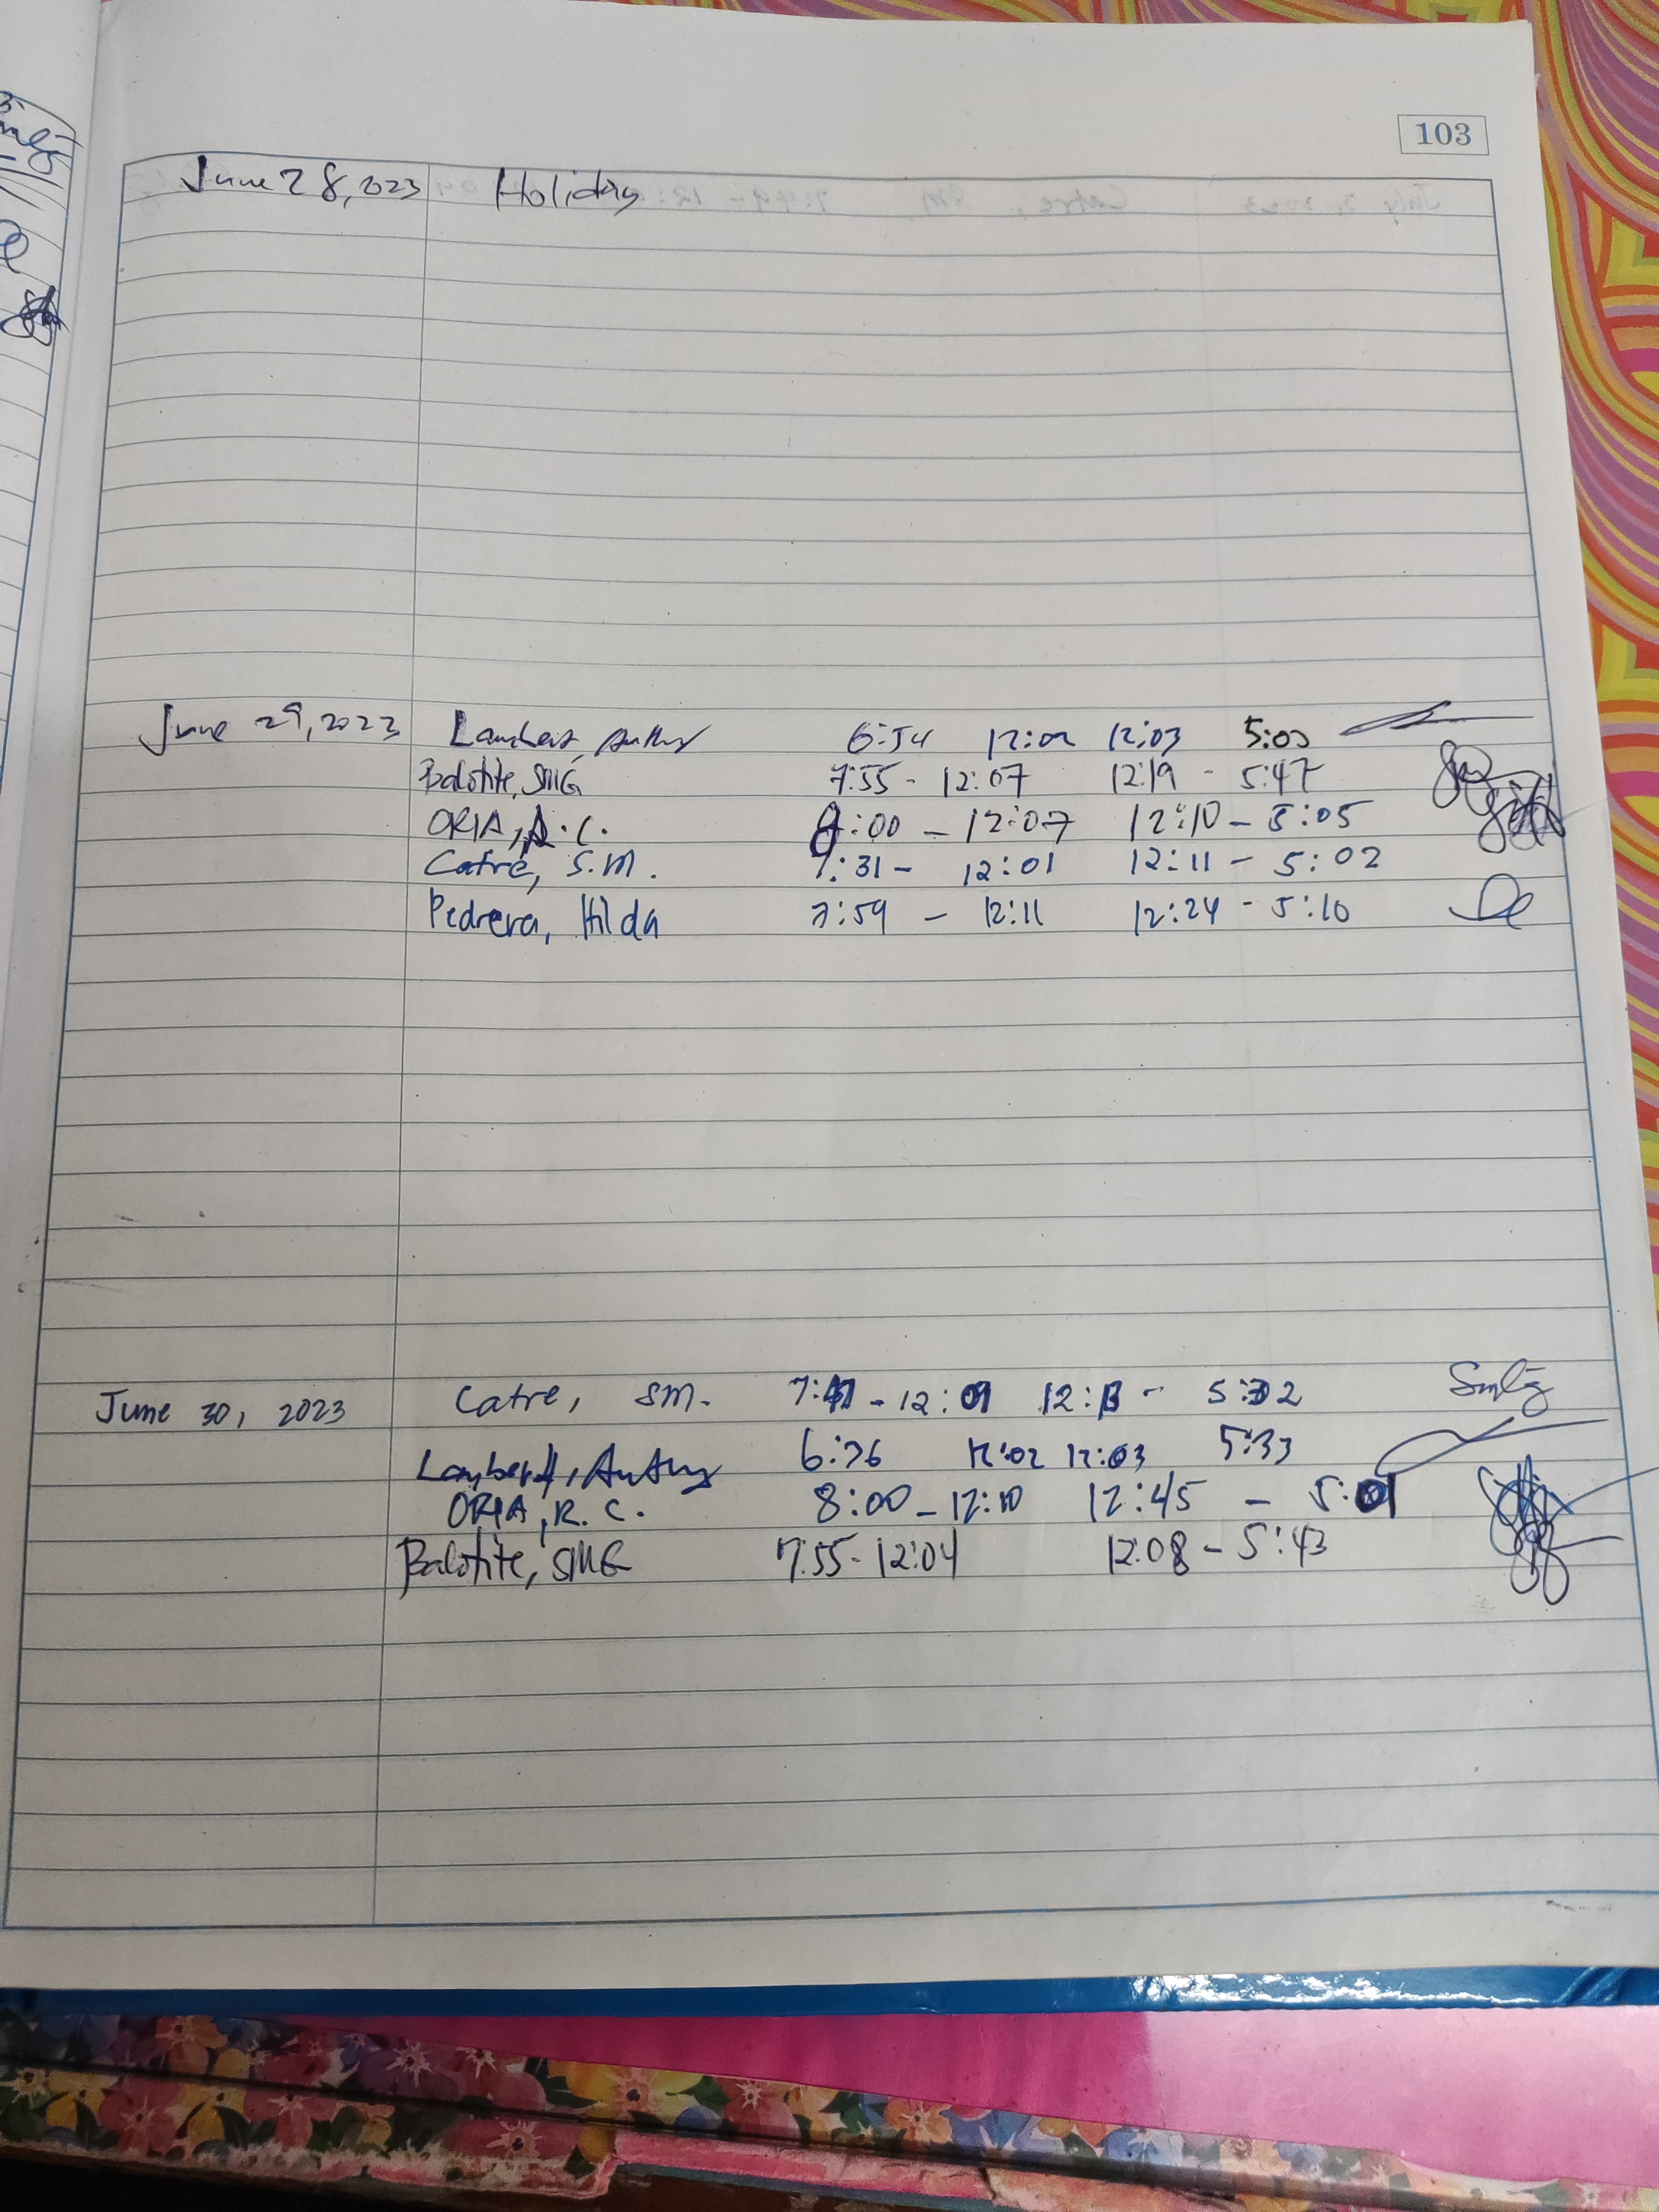 103
June 28, 2023 Holiday
June 29, 2023 Lambert, Anthny 6:54 12:02 12:03 5:03
Balotite, SMG 7:55 - 12:07 12:19 - 5:47
ORIA, R.C. 8:00 - 12:07 12:10 - 5:05
Catre, S.M. 7:31 - 12:01 12:11 - 5:02
Pedrera, Hilda 7:59 - 12:11 12:24 - 5:10
June 30, 2023 Catre, SM. 12:13 - 5:32
Lambert, Anthny 6:36 12:02 12:03 5:33
ORIA, R.C. 8:00 - 12:10 12:45 - 5:01
Balotite, SMG 7:55 - 12:04 12:08 - 5:43